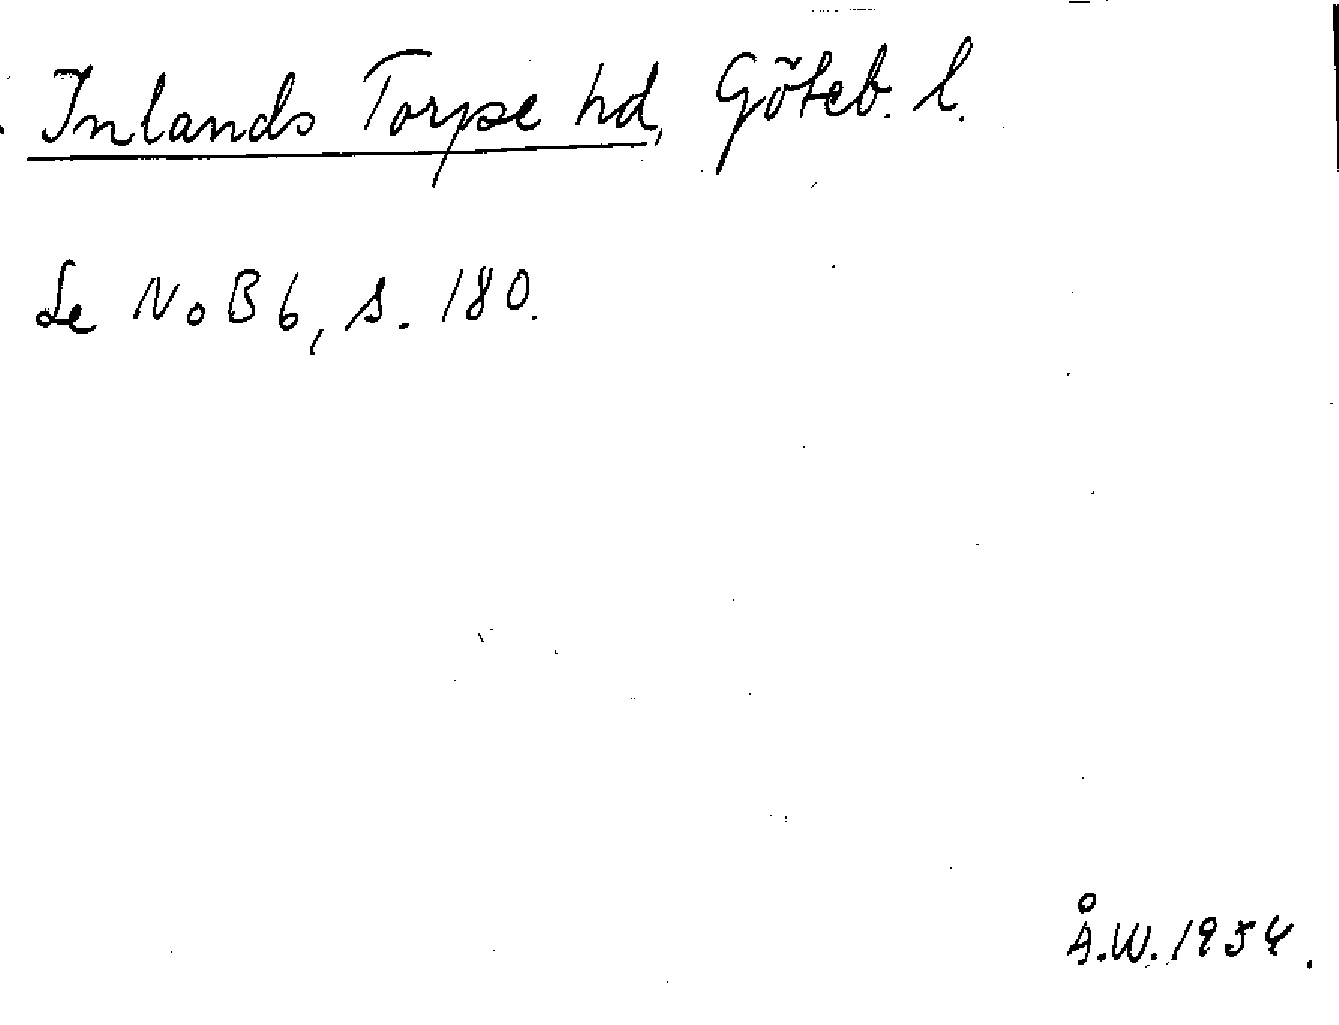 Inlands Torpe hd, Göteb. l.
Se NoB 6, s. 180.
Å.W. 1954.